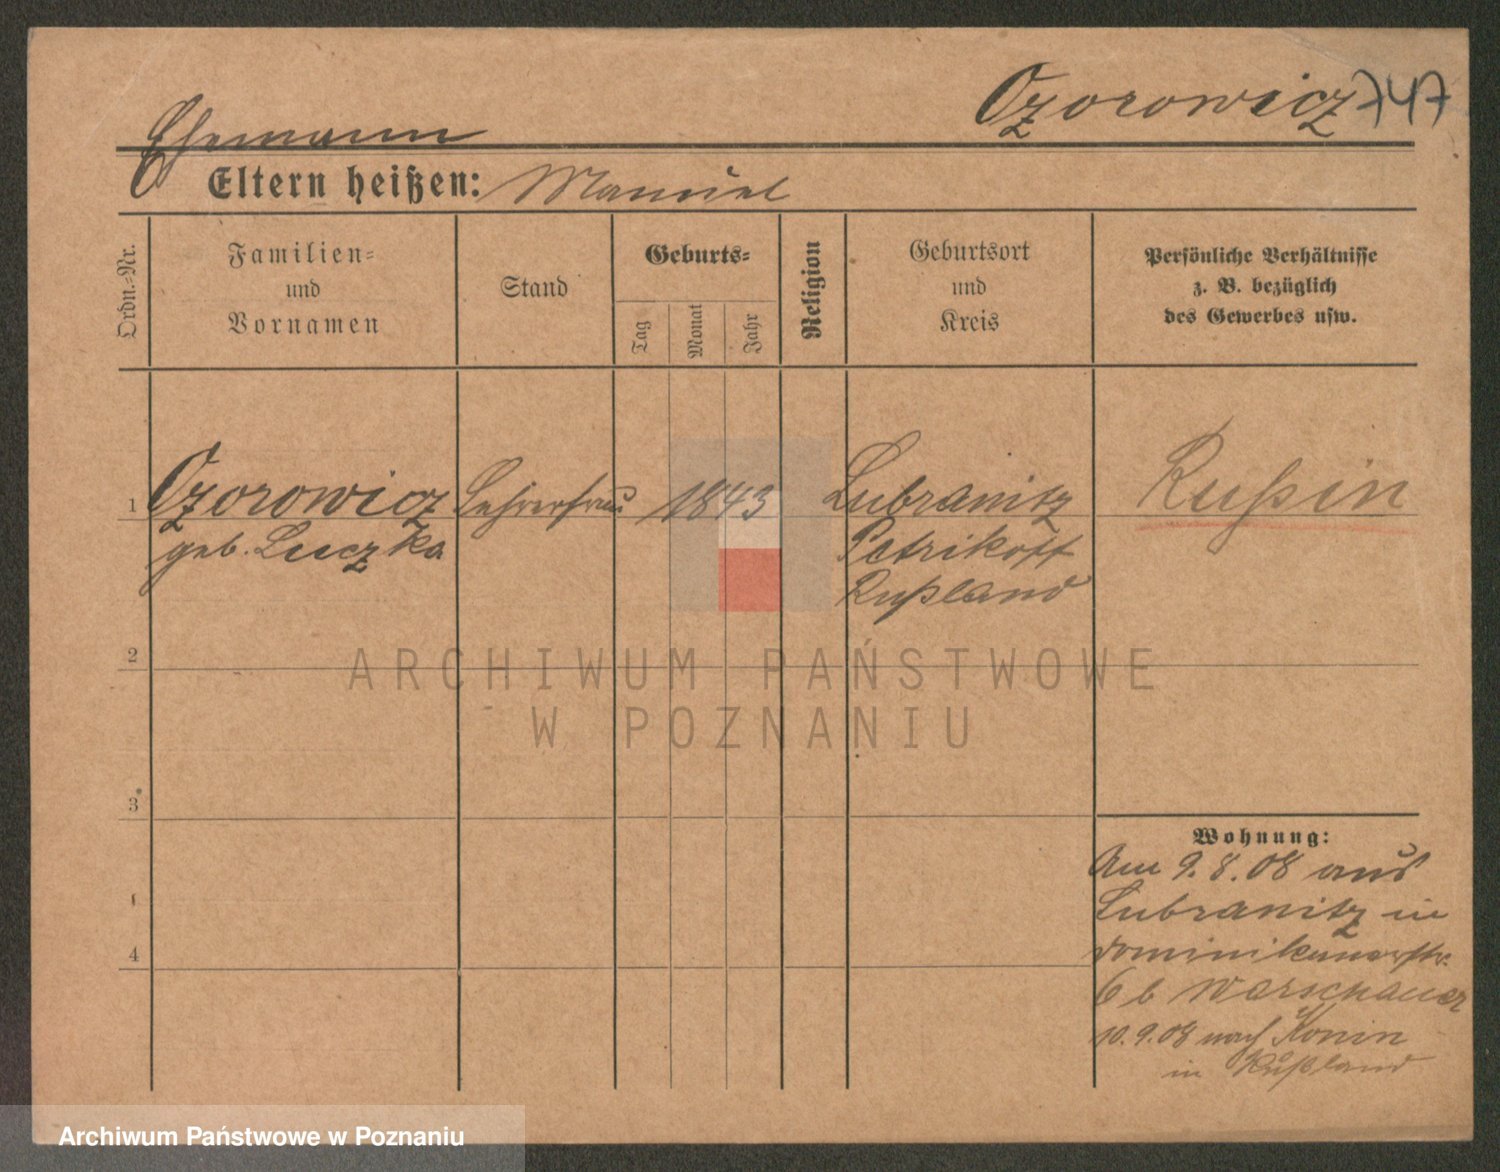 Ozorowicz 747
Ehemann
Eltern heißen: Manuel
Ordn.-Nr.
Familien-
und
Vornamen
Stand
Geburts-
Tag
Monat
Jahr
Religion
Geburtsort
und
Kreis
Persönliche Verhältnisse
z. B. bezüglich
des Gewerbes usw.
1
Ozorowicz
geb. Luczka
Lehrerfrau
1843
Lubranitz
Petrikoff
Rußland
Rußin
2
3
4
Wohnung:
Am 9.8.08 aus
Lubranitz in
Dominikanerstr.
6 b Warschauer
10.9.08 nach Konin
in Rußland
ARCHIWUM PAŃSTWOWE
W POZNANIU
Archiwum Państwowe w Poznaniu